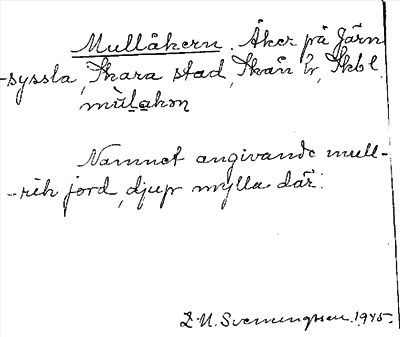 Mullåkern. Åker på Järn-
-syssla, Skara stad, Skån hr, Skbl.
mùlakøn
Namnet angivande mull-
-rik jord, djup mylla där.
Z.N. Svenungsson. 1945.